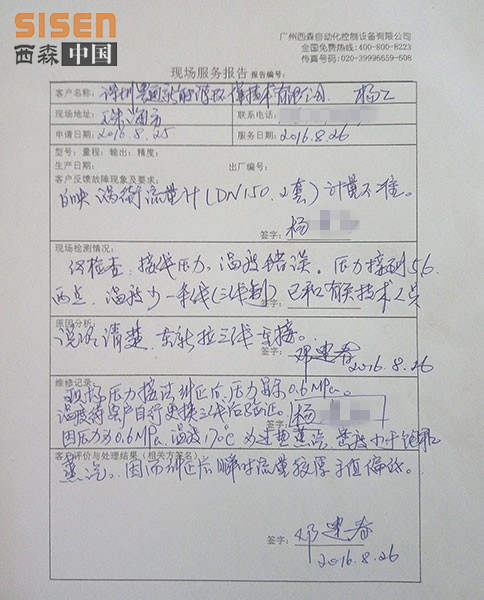 SISEN
西森中国
广州西森自动化控制设备有限公司
全国免费热线:400-800-8223
传真号码:020-39996659-608
现场服务报告 报告编号:
客户名称: 深圳 新能源环保技术有限公司 杨工
现场地址: 珠海市 联系电话:
申请日期: 2016.8.25 服务日期: 2016.8.26
型号: 量程: 输出: 精度:
生产日期: 出厂编号:
客户反馈故障现象及要求:
反映涡街流量计(DN150.2套)计量不准。
签字: 杨
现场检测情况:
经检查,接线压力,温度错误。压力接到56
两点,温度少一条线(三线制)已和有关技术人员
签字:
原因分析:
说清楚,重新拉三线连接。
邓建春
2016.8.26
维修记录:
现场压力接法纠正后,压力显示0.6MPa。
温度待客户自行更换三线后验证。
签字: 杨
因压力为0.6MPa,温度170℃为过热蒸汽,密度小于饱和
客户评价与处理结果(相关方签名):
蒸汽。因而纠正后瞬时流量较厚于值偏低。
签字: 邓建春
2016.8.26